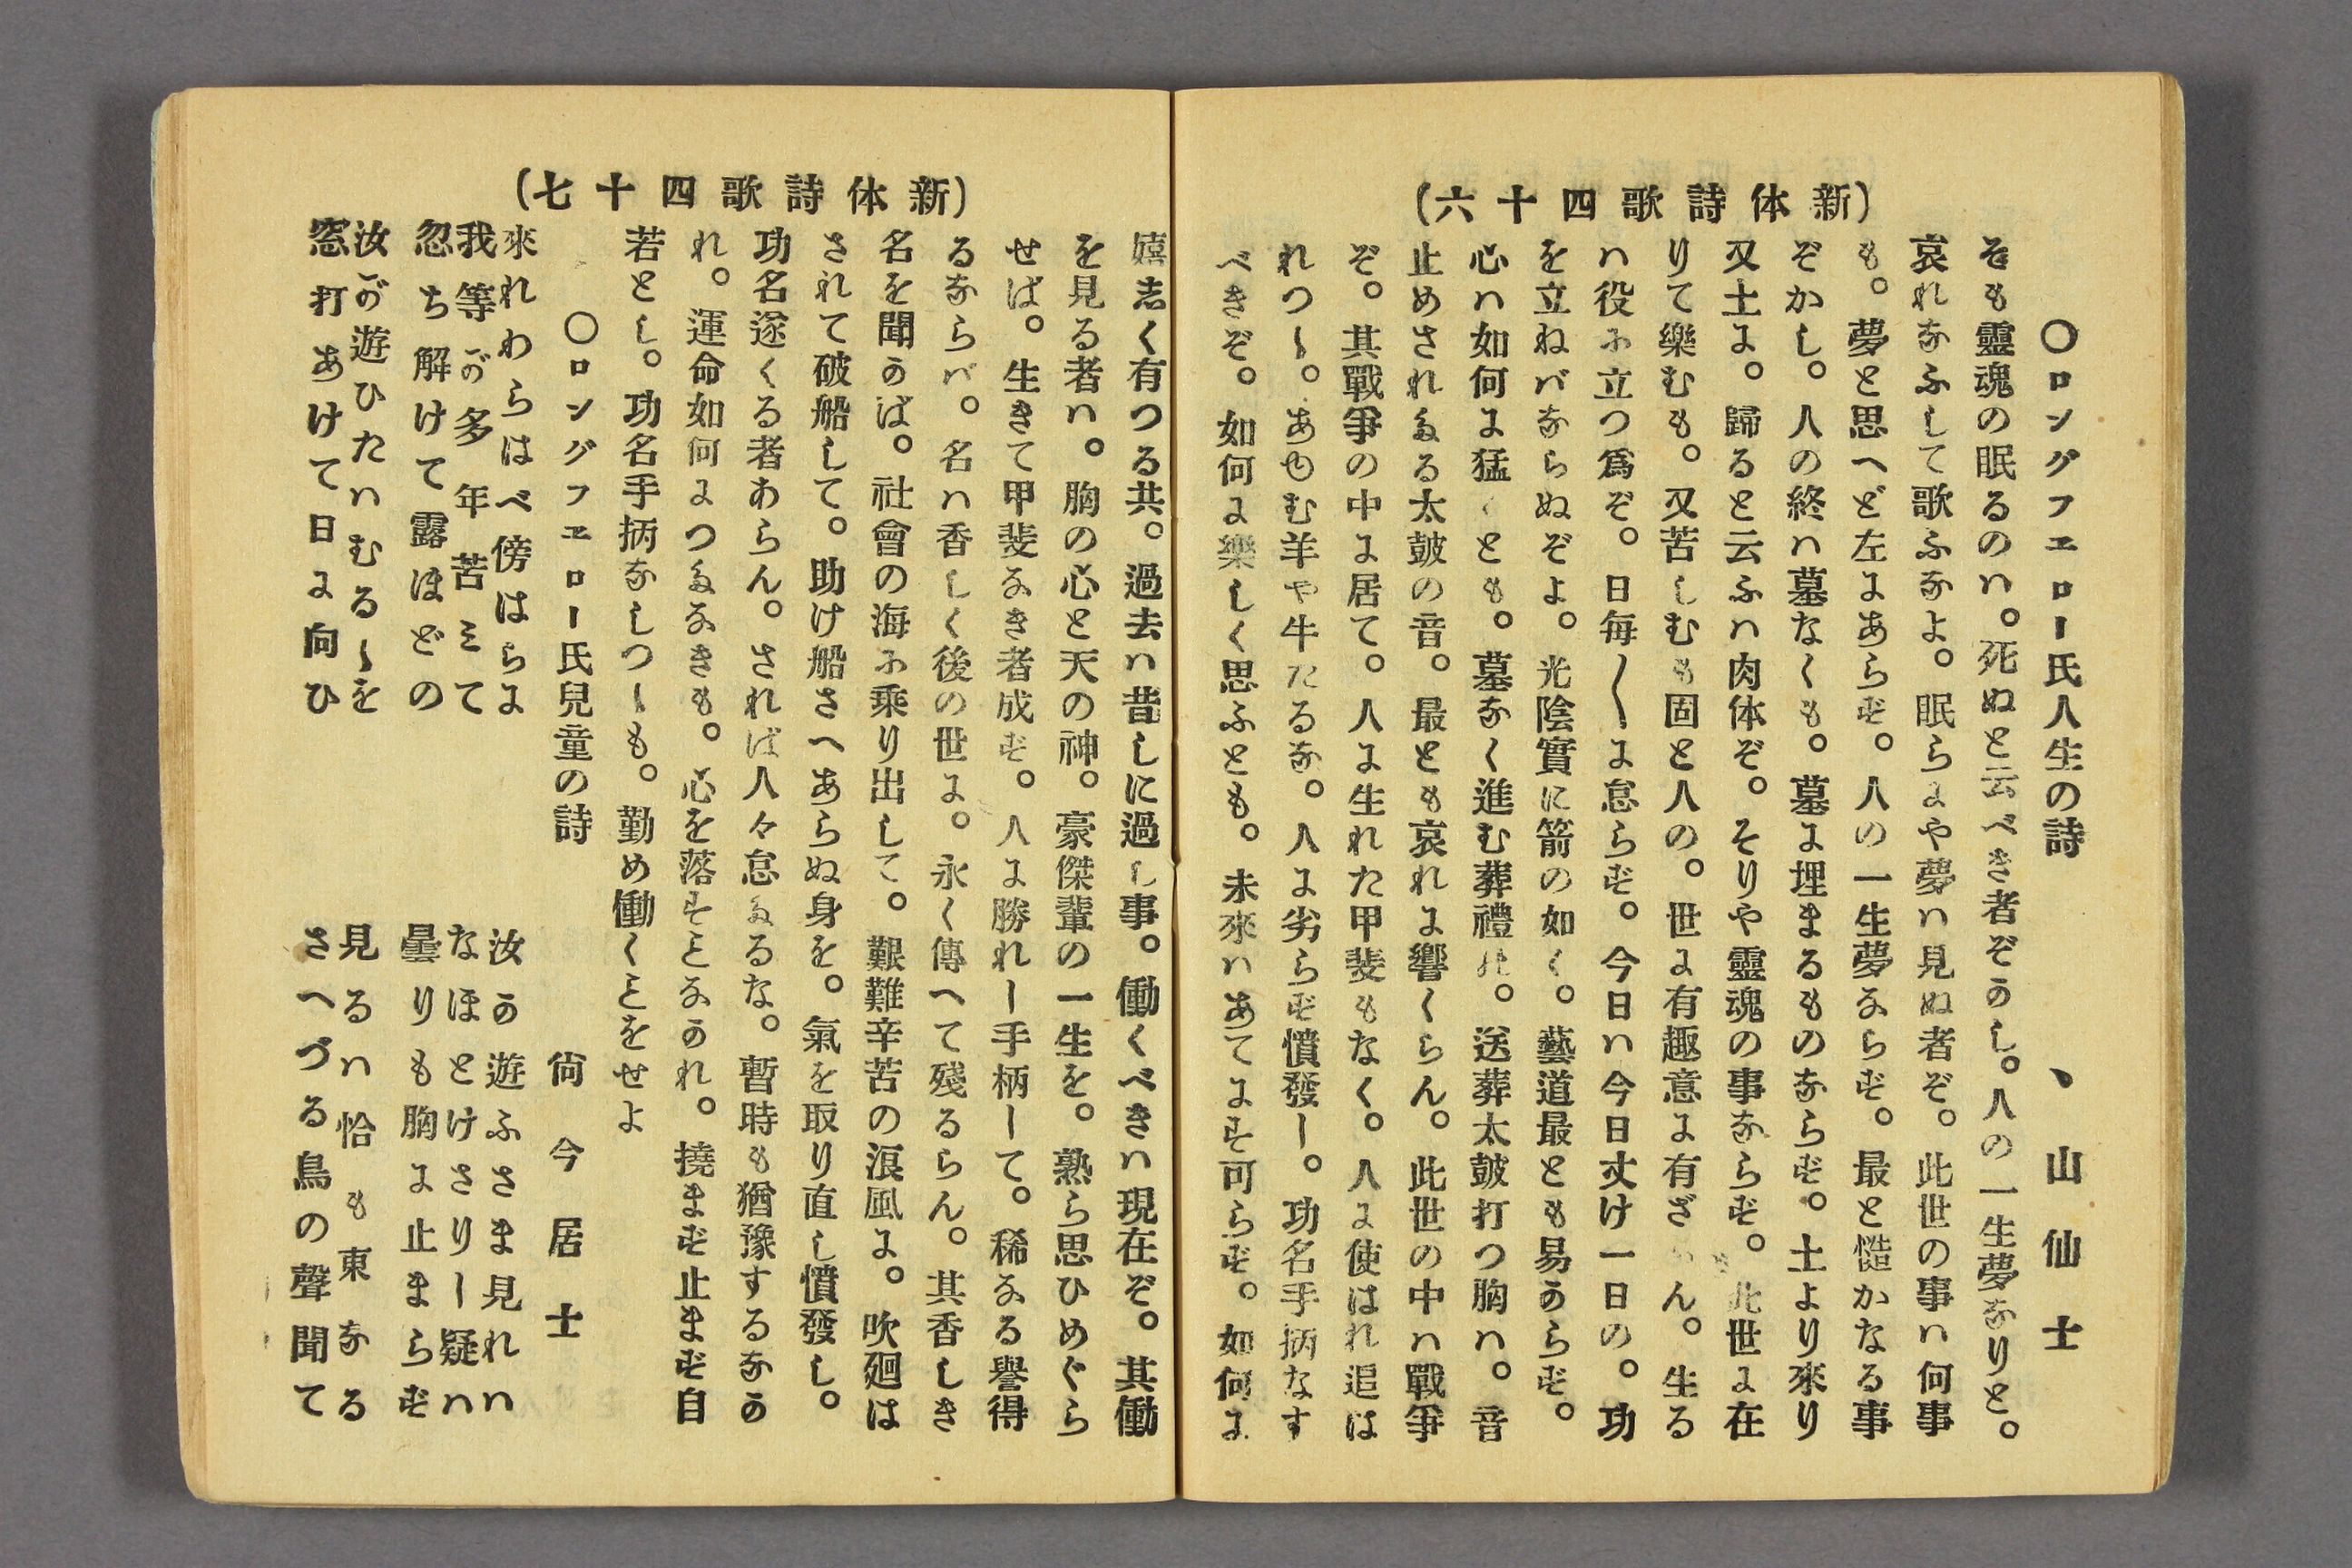 (新体詩歌四十六)
〇ロングフエロー氏人生の詩　　　ヽ山仙士
そも靈魂の眠るのハ。死ぬと云べき者ぞかし。人の一生夢なりと。
哀れなふして歌ふなよ。眠らにや夢ハ見ぬ者ぞ。此世の事ハ何事
も。夢と思へど左にあらず。人の一生夢ならず。最と慥かなる事
ぞかし。人の終ハ墓なくも。墓に埋まるものならず。土より來り
又土に。歸ると云ふハ肉体ぞ。そりや靈魂の事ならず。此世に在
りて樂むも。又苦しむも固と人の。世に有趣意に有ざらん。生る
ハ役に立つ爲ぞ。日毎〳〵に怠らず。今日ハ今日丈け一日の。功
を立ねバならぬぞよ。光陰實に箭の如く。藝道最とも易からず。
心ハ如何に猛くとも。墓なく進む葬禮の。送葬太皷打つ胸ハ。音
止めされたる太皷の音。最とも哀れに響くらん。此世の中ハ戰爭
ぞ。其戰爭の中に居て。人に生れた甲斐もなく。人に使はれ追は
れつゝ。あゆむ羊や牛たるな。人に劣らず憤發し。功名手柄なす
べきぞ。如何に樂しく思ふとも。未來ハあてにす可らず。如何に
(新体詩歌四十七)
嬉志く有つる共。過去ハ昔しに過し事。働くべきハ現在ぞ。其働
を見る者ハ。胸の心と天の神。豪傑輩の一生を。熟ら思ひめぐら
せば。生きて甲斐なき者成ず。人に勝れし手柄して。稀なる譽得
るならバ。名ハ香しく後の世に。永く傳へて殘るらん。其香しき
名を聞かば。社會の海に乘り出して。艱難辛苦の浪風に。吹廻は
されて破船して。助け船さへあらぬ身を。氣を取り直し憤發し。
功名遂くる者あらん。されば人々怠たるな。暫時も猶豫するなか
れ。運命如何につたなきも。心を落すことなかれ。撓まず止まず自
若とし。功名手柄なしつゝも。勤め働くことをせよ
〇ロングフエロー氏兒童の詩　　　尙今居士
來れわらはべ傍はらに　　　汝の遊ふさま見れハ
我等が多年苦ミて　　　なほとけさりし疑ハ
忽ち解けて露ほどの　　　曇りも胸に止まらず
汝が遊ひたハむるゝを　　　見るハ恰も東なる
窓打あけて日に向ひ　　　さへづる鳥の聲聞て